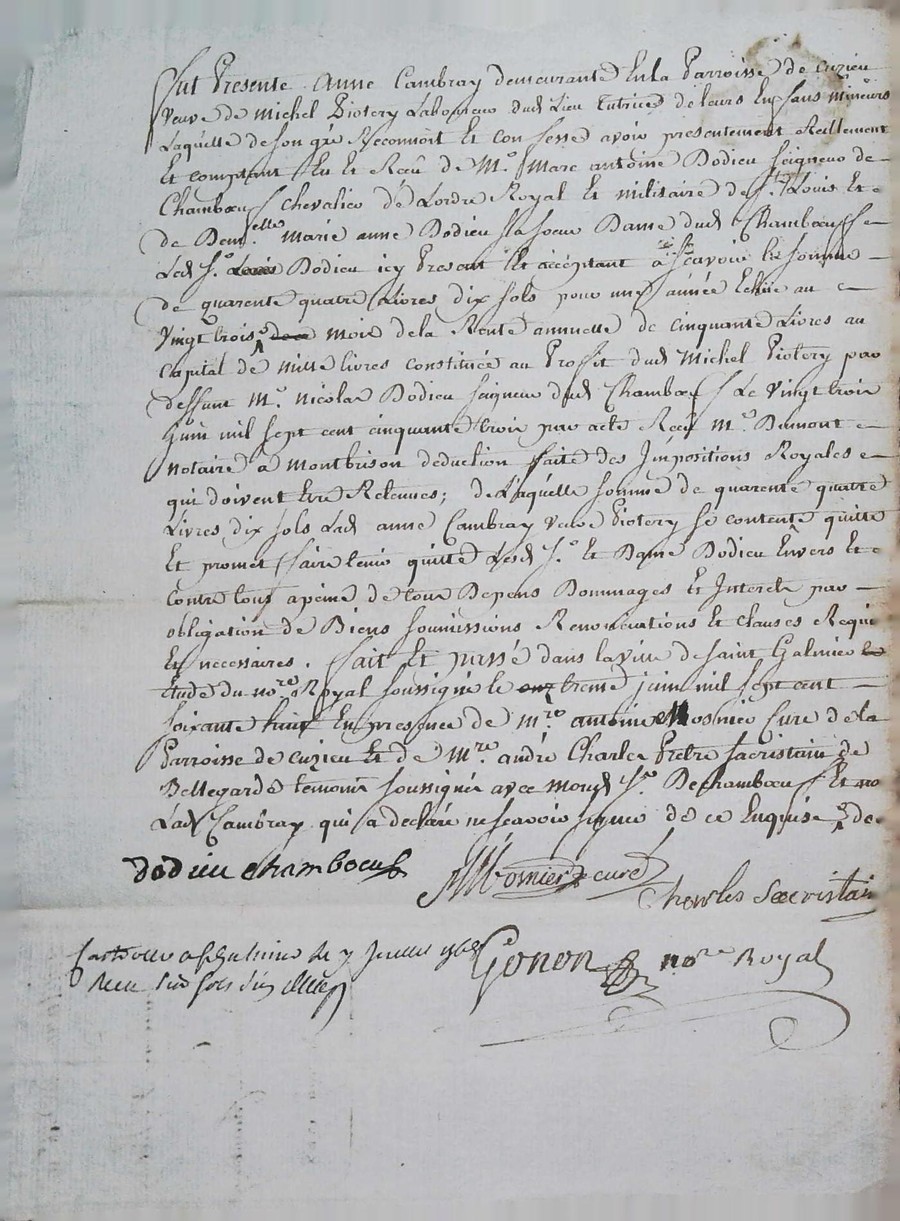 Fut Presente Anne Cambray demeurante En la Parroisse de cuzieu
veuve de michel Piotery Laboureur dud Lieu tutrice de leurs Enfans mineurs
Laquelle de son gré Reconnoit Et confesse avoir presentement Reellement
Et comptant Eu Et Reçû de Mr. Marc antoine Dodieu seigneur de
Chambœuf chevalier de Lordre Royal Et militaire de St. Louis Et
de Demelle. marie anne Dodieu sa sœur Dame dud Chambœuf
Led Sr. Dodieu icy Present Et acceptant a sçavoir la somme
de quarente quatre Livres dix sols pour une année Echüe au
vingt trois mois de la Rente annuelle de cinquante Livres au
capital de mille livres constituée au Proffit dud Michel Piotery par
deffunt Mr. nicolas Dodieu seigneur dud Chambœuf Le vingt trois
Juin mil sept cent cinquante trois par acte Reçu Mr. Dumont
notaire a montbrison deduction faite des Impositions Royales
qui doivent Etre Retenues; de Laquelle somme de quarente quatre
Livres dix sols Lad anne Cambray veuve Piotery se contente quitte
Et promet faire tenir quitte Lesd Sr. Et Dame Dodieu Envers Et
contre tous a peine de tous Depens Dommages Et Interets par
obligation de Biens soumissions Renonciations Et clauses Requi
Et necessaires. fait Et passé dans la ville de saint Galmier
Etude du nore Royal soussigné le trente juin mil sept cent
soixante huit En presence de mre antoine Mosnier curé de la
Parroisse de cuzieu Et de Mre. andré Charles Pretre sacristain de
Bellegarde temoins soussignés avec mond Sr. De chambœuf Et no
Lad Cambray qui a declaré ne sçavoir signer de ce Enquise de
dodieu chambœuf
Mosnier curé
Charles Sacristain
Controllé a St Galmier le 7 Juillet 1768
Reçu dix sols six
Gonon nore Royal